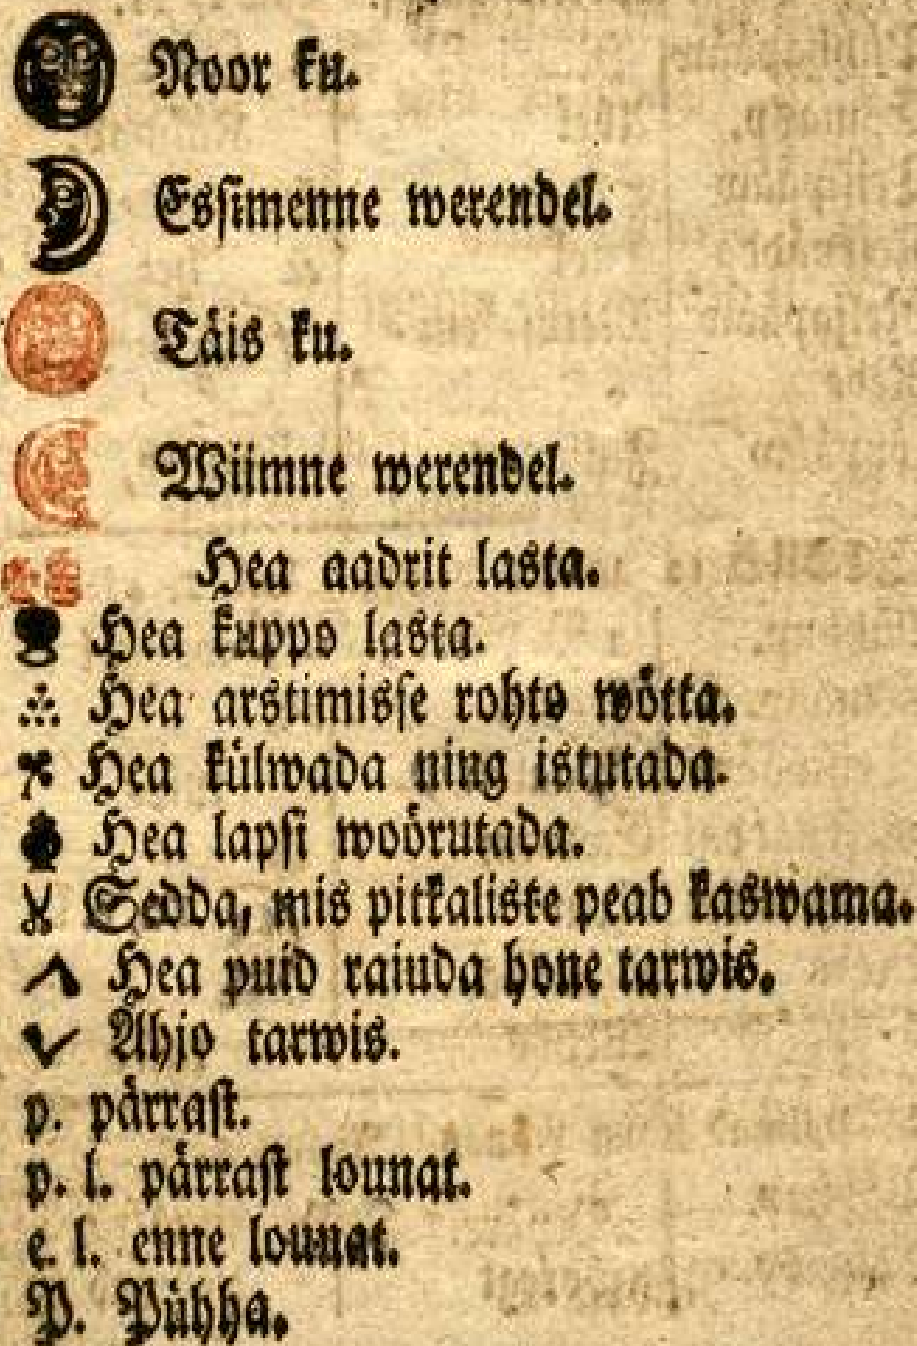 Noor ku.
Esſimenne werendel.
Täis ku.
Wiimne werendel.
Hea aadrit lasta.
Hea kuppo lasta.
Hea arstimisſe rohto wötta.
Hea külwada ning istutada.
Hea lapſi woörutada.
Sedda, mis pitkaliste peab kaswama.
Hea puid raiuda hone tarwis.
Ahjo tarwis.
p. pärraſt.
p. l. pärraſt lounat.
e. l. enne lounat.
P. Pühha.